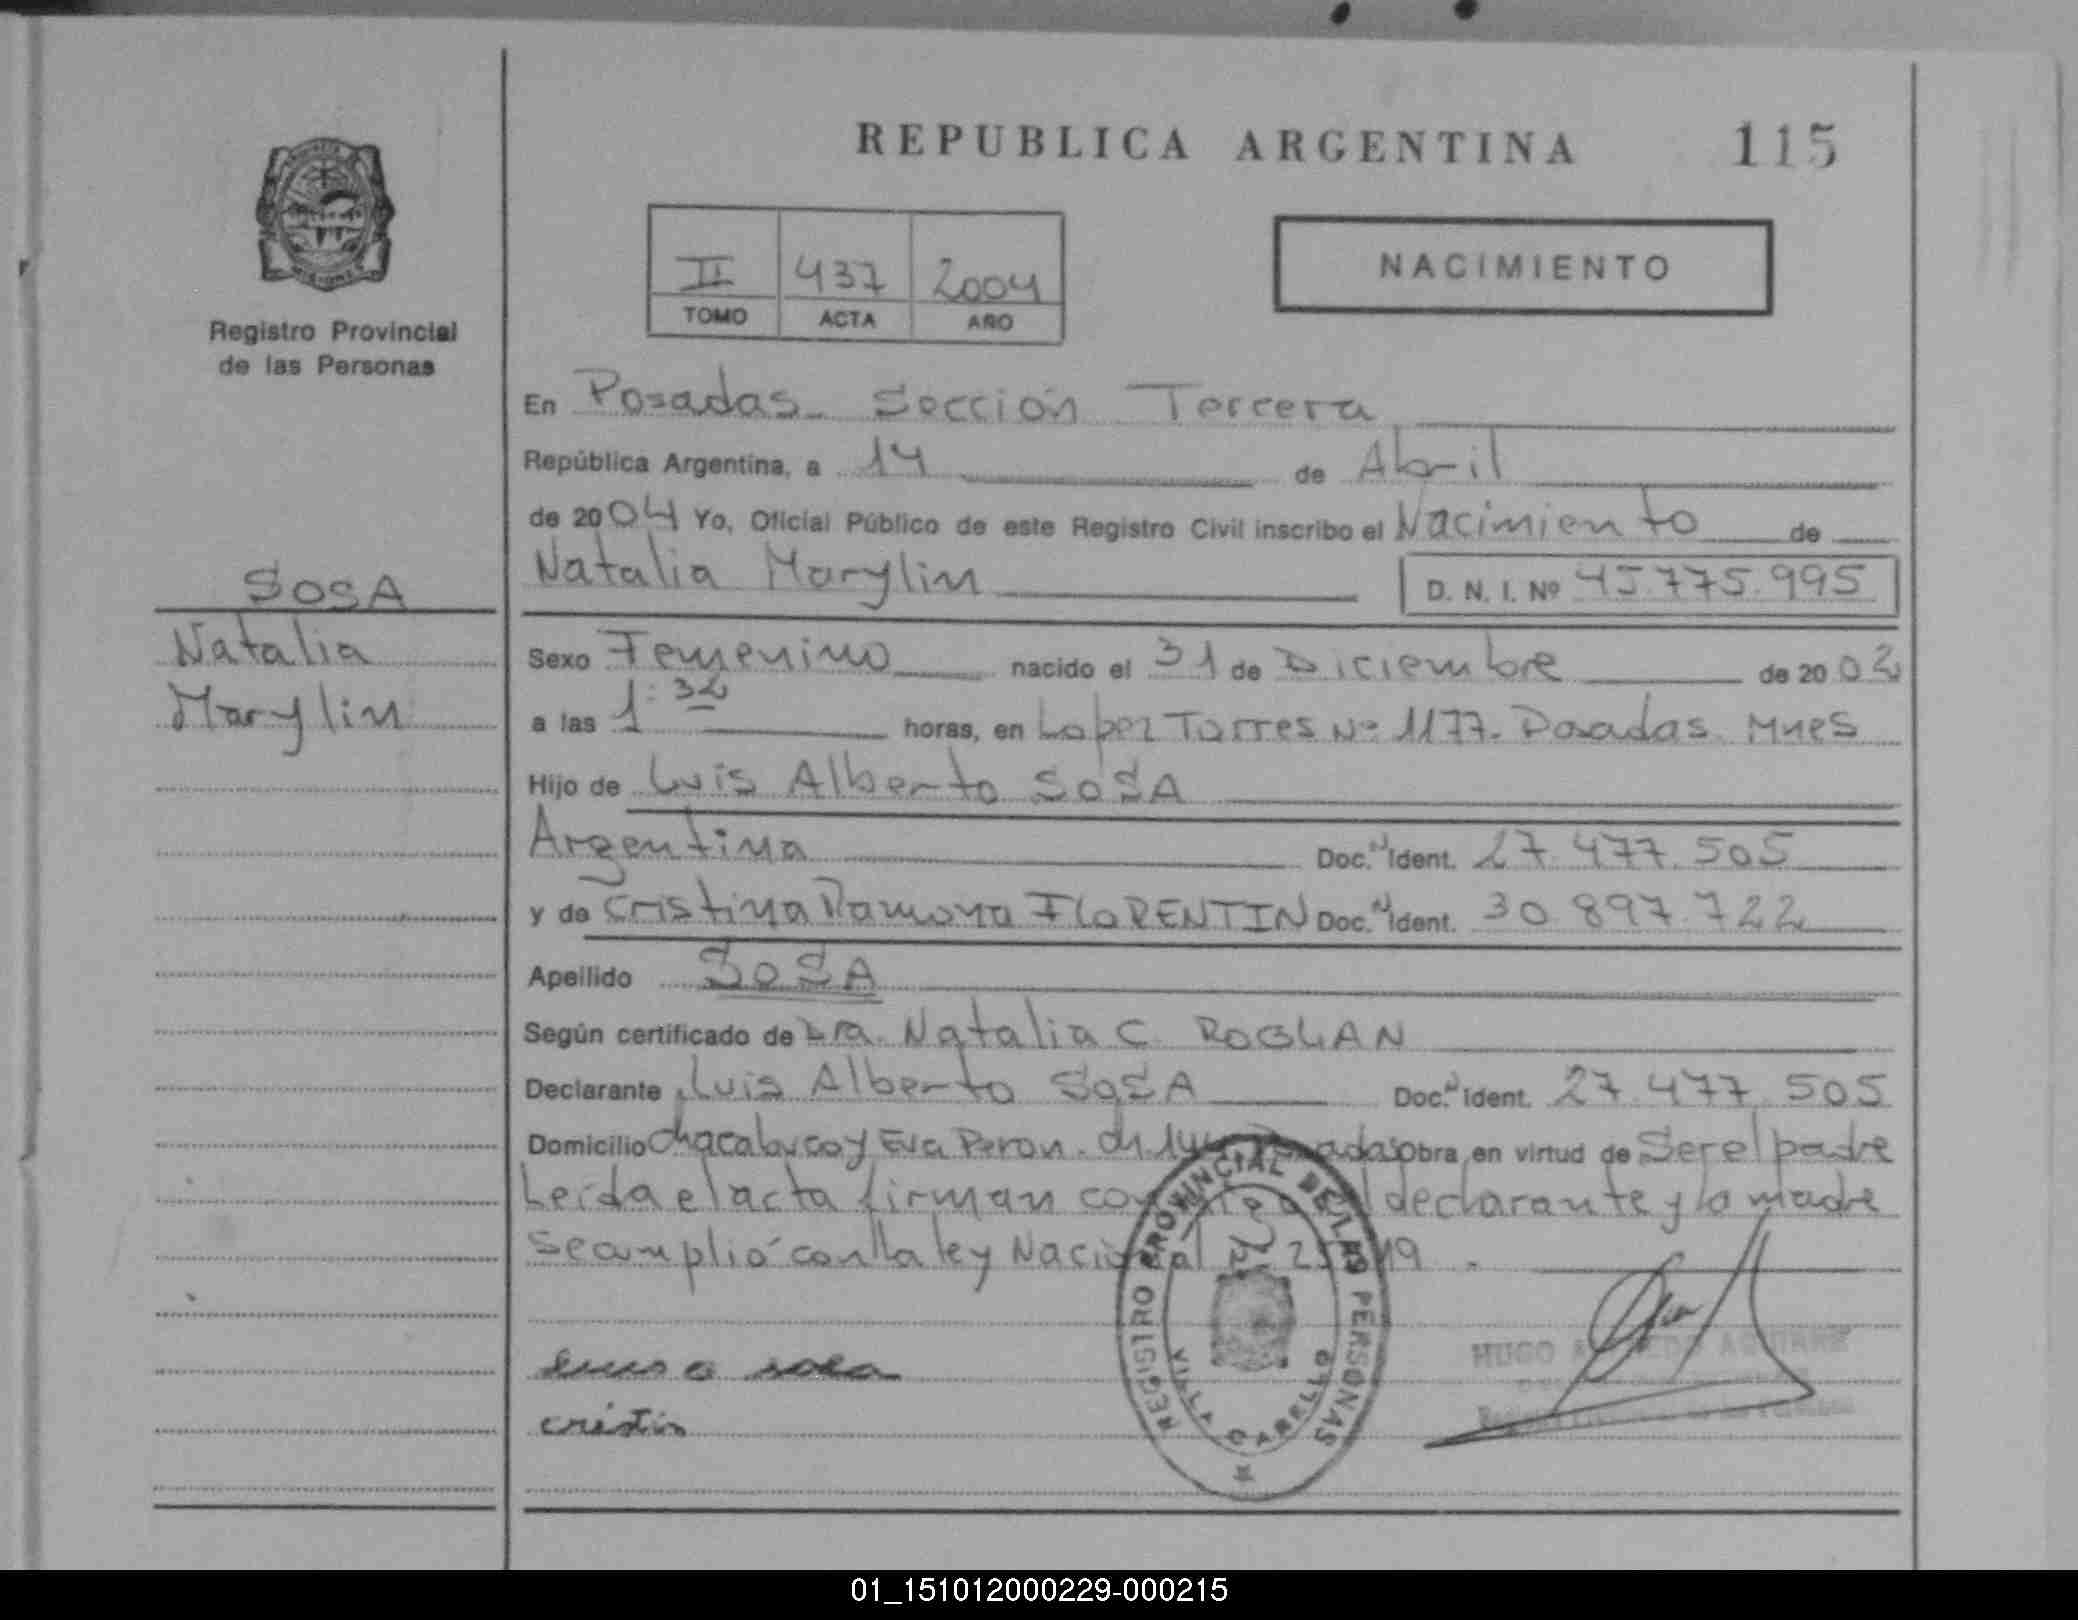 REPUBLICA ARGENTINA 115
Registro Provincial
de las Personas
II 437 2004
TOMO ACTA AÑO
NACIMIENTO
En Posadas - Sección Tercera
República Argentina, a 14 de Abril
de 2004 Yo, Oficial Público de este Registro Civil inscribo el Nacimiento de
Natalia Marylin D. N. I. Nº 45.775.995
SOSA
Natalia
Marylin
Sexo Femenino nacido el 31 de Diciembre de 2002
a las 1:32 horas, en Lopez Torres Nº 1177. Posadas Mnes
Hijo de Luis Alberto SOSA
Argentina Doc. N Ident. 27.477.505
y de Cristina Ramona FLORENTIN Doc. N Ident. 30.897.722
Apellido SOSA
Según certificado de Dra. Natalia C. ROGLAN
Declarante Luis Alberto SOSA Doc. N Ident. 27.477.505
Domicilio Chacabuco y Eva Peron. Ch. Posadas obra en virtud de Ser el padre
Leída el acta firman el declarante y la madre
Se cumplió con la ley Nacional
REGISTRO PROVINCIAL DE LAS PERSONAS
VILLA CABELLO
luis a sosa
cristin
HUGO AGUIRRE
01_151012000229-000215